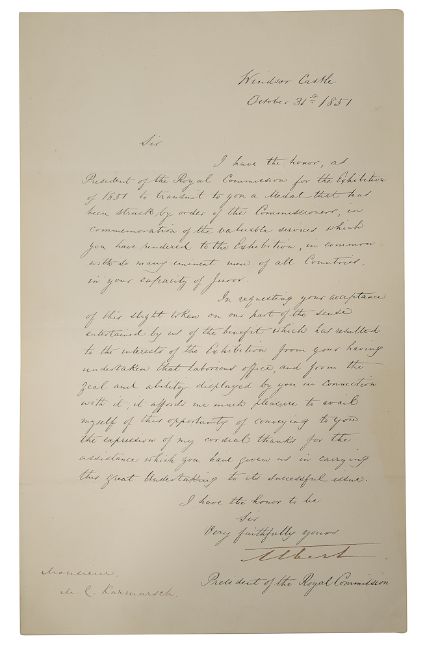 Windsor Castle
October 31st 1851
Sir
I have the honor, as
President of the Royal Commission for the Exhibition
of 1851 to transmit to you a Medal that has
been struck by order of the Commissioners, in
commemoration of the valuable services which
you have rendered to the Exhibition, in common
with so many eminent men of all Countries,
in your capacity of Juror.
In requesting your acceptance
of this slight token on our part of the sense
entertained by us of the benefit which has resulted
to the interests of the Exhibition from your having
undertaken that laborious office, and from the
zeal and ability displayed by you in connection
with it, it affords me much pleasure to avail
myself of this opportunity of conveying to you
the expression of my cordial thanks for the
assistance which you have given us in carrying
this great undertaking to its successful issue.
I have the honor to be
Sir
Very faithfully yours
Albert
President of the Royal Commission
Monsieur
Karmarsch.